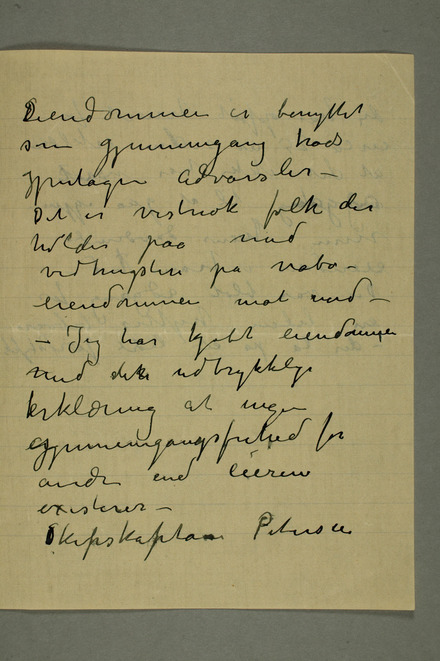 Eiendommen er benyttet
som gjennemgang trods
gjentagne advarsler –
Det er vistnok folk der
holder paa med
vedhugsten på nabo-
eiendommen mot nord –
– Jeg har kjøbt eiendommen
med den udtrykkelige
erklæring at ingen
gjennemgangsfrihed for
andre end eieren
existerer –
Skipskaptain Petersen